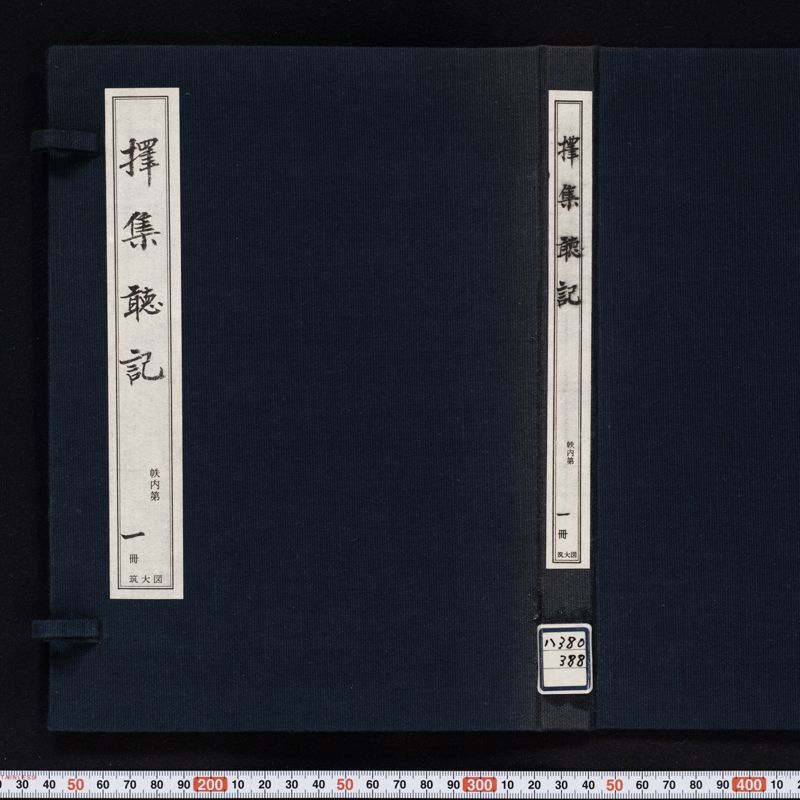 擇集聽記
帙内第
一冊
筑大図
擇集聽記
帙内第
一冊
筑大図
ハ380
388
STAINLESS
30 40 50 60 70 80 90 200 10 20 30 40 50 60 70 80 90 300 10 20 30 40 50 60 70 80 90 400 10